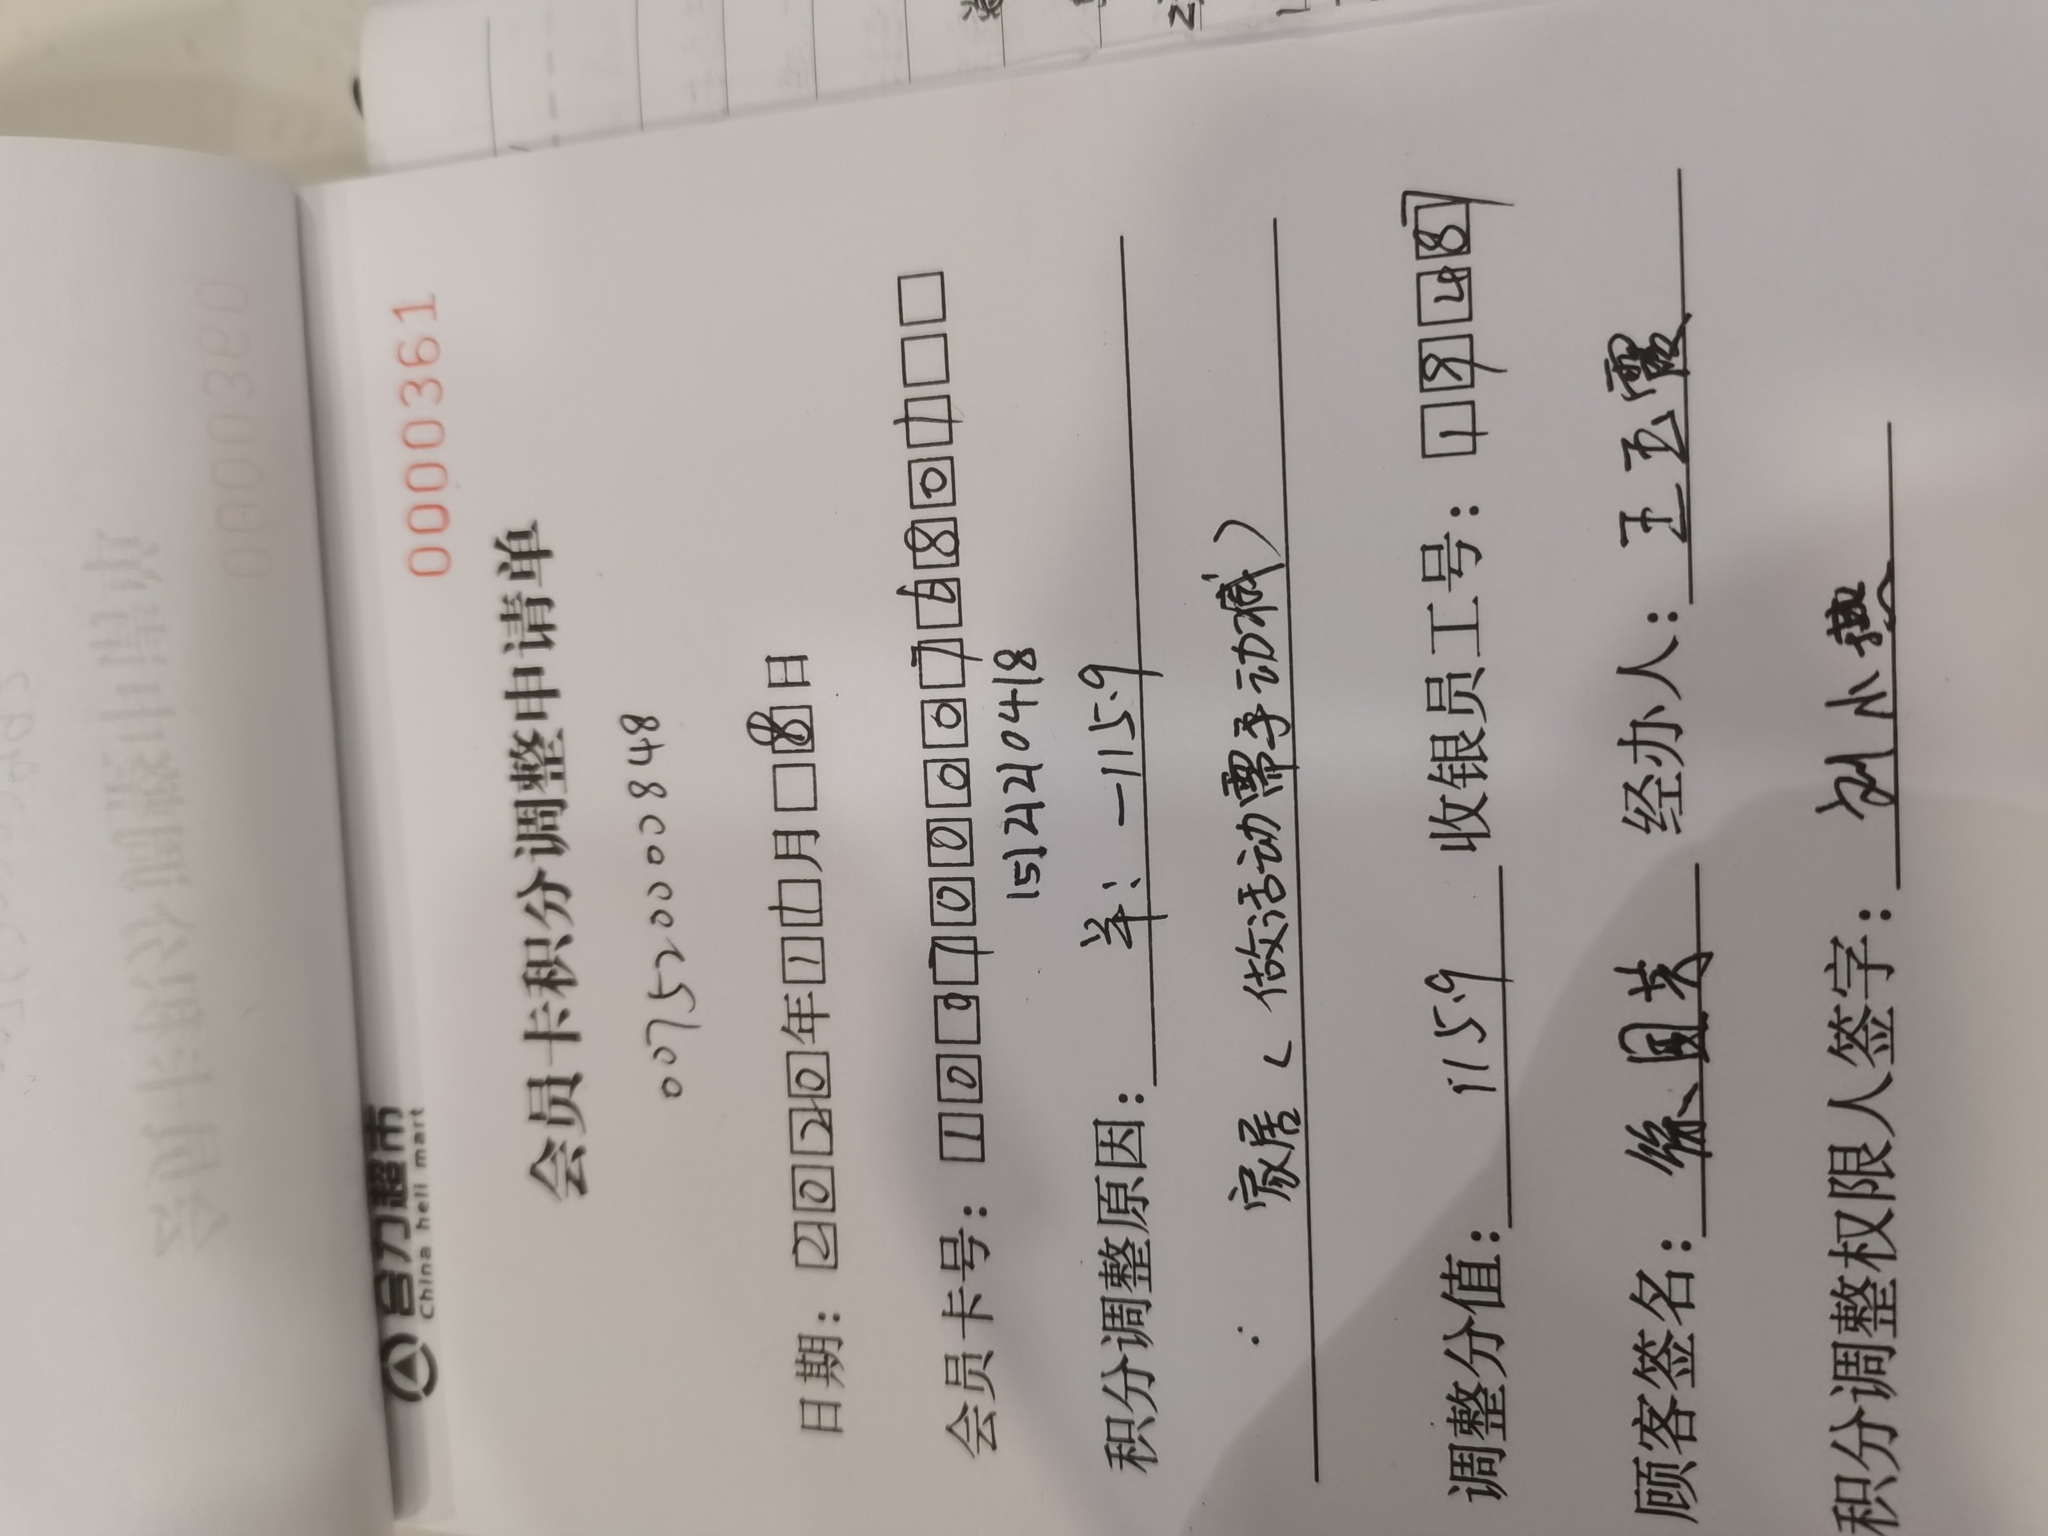 合力超市
China hell mart
0000361
会员卡积分调整申请单
007520000848
日期：2020年11月8日
会员卡号：1097000076801
15121210418
积分调整原因：羊：-1159
家居（做活动需手动减）
调整分值：1159 收银员工号：19487
顾客签名： 经办人：王玉霞
积分调整权限人签字：